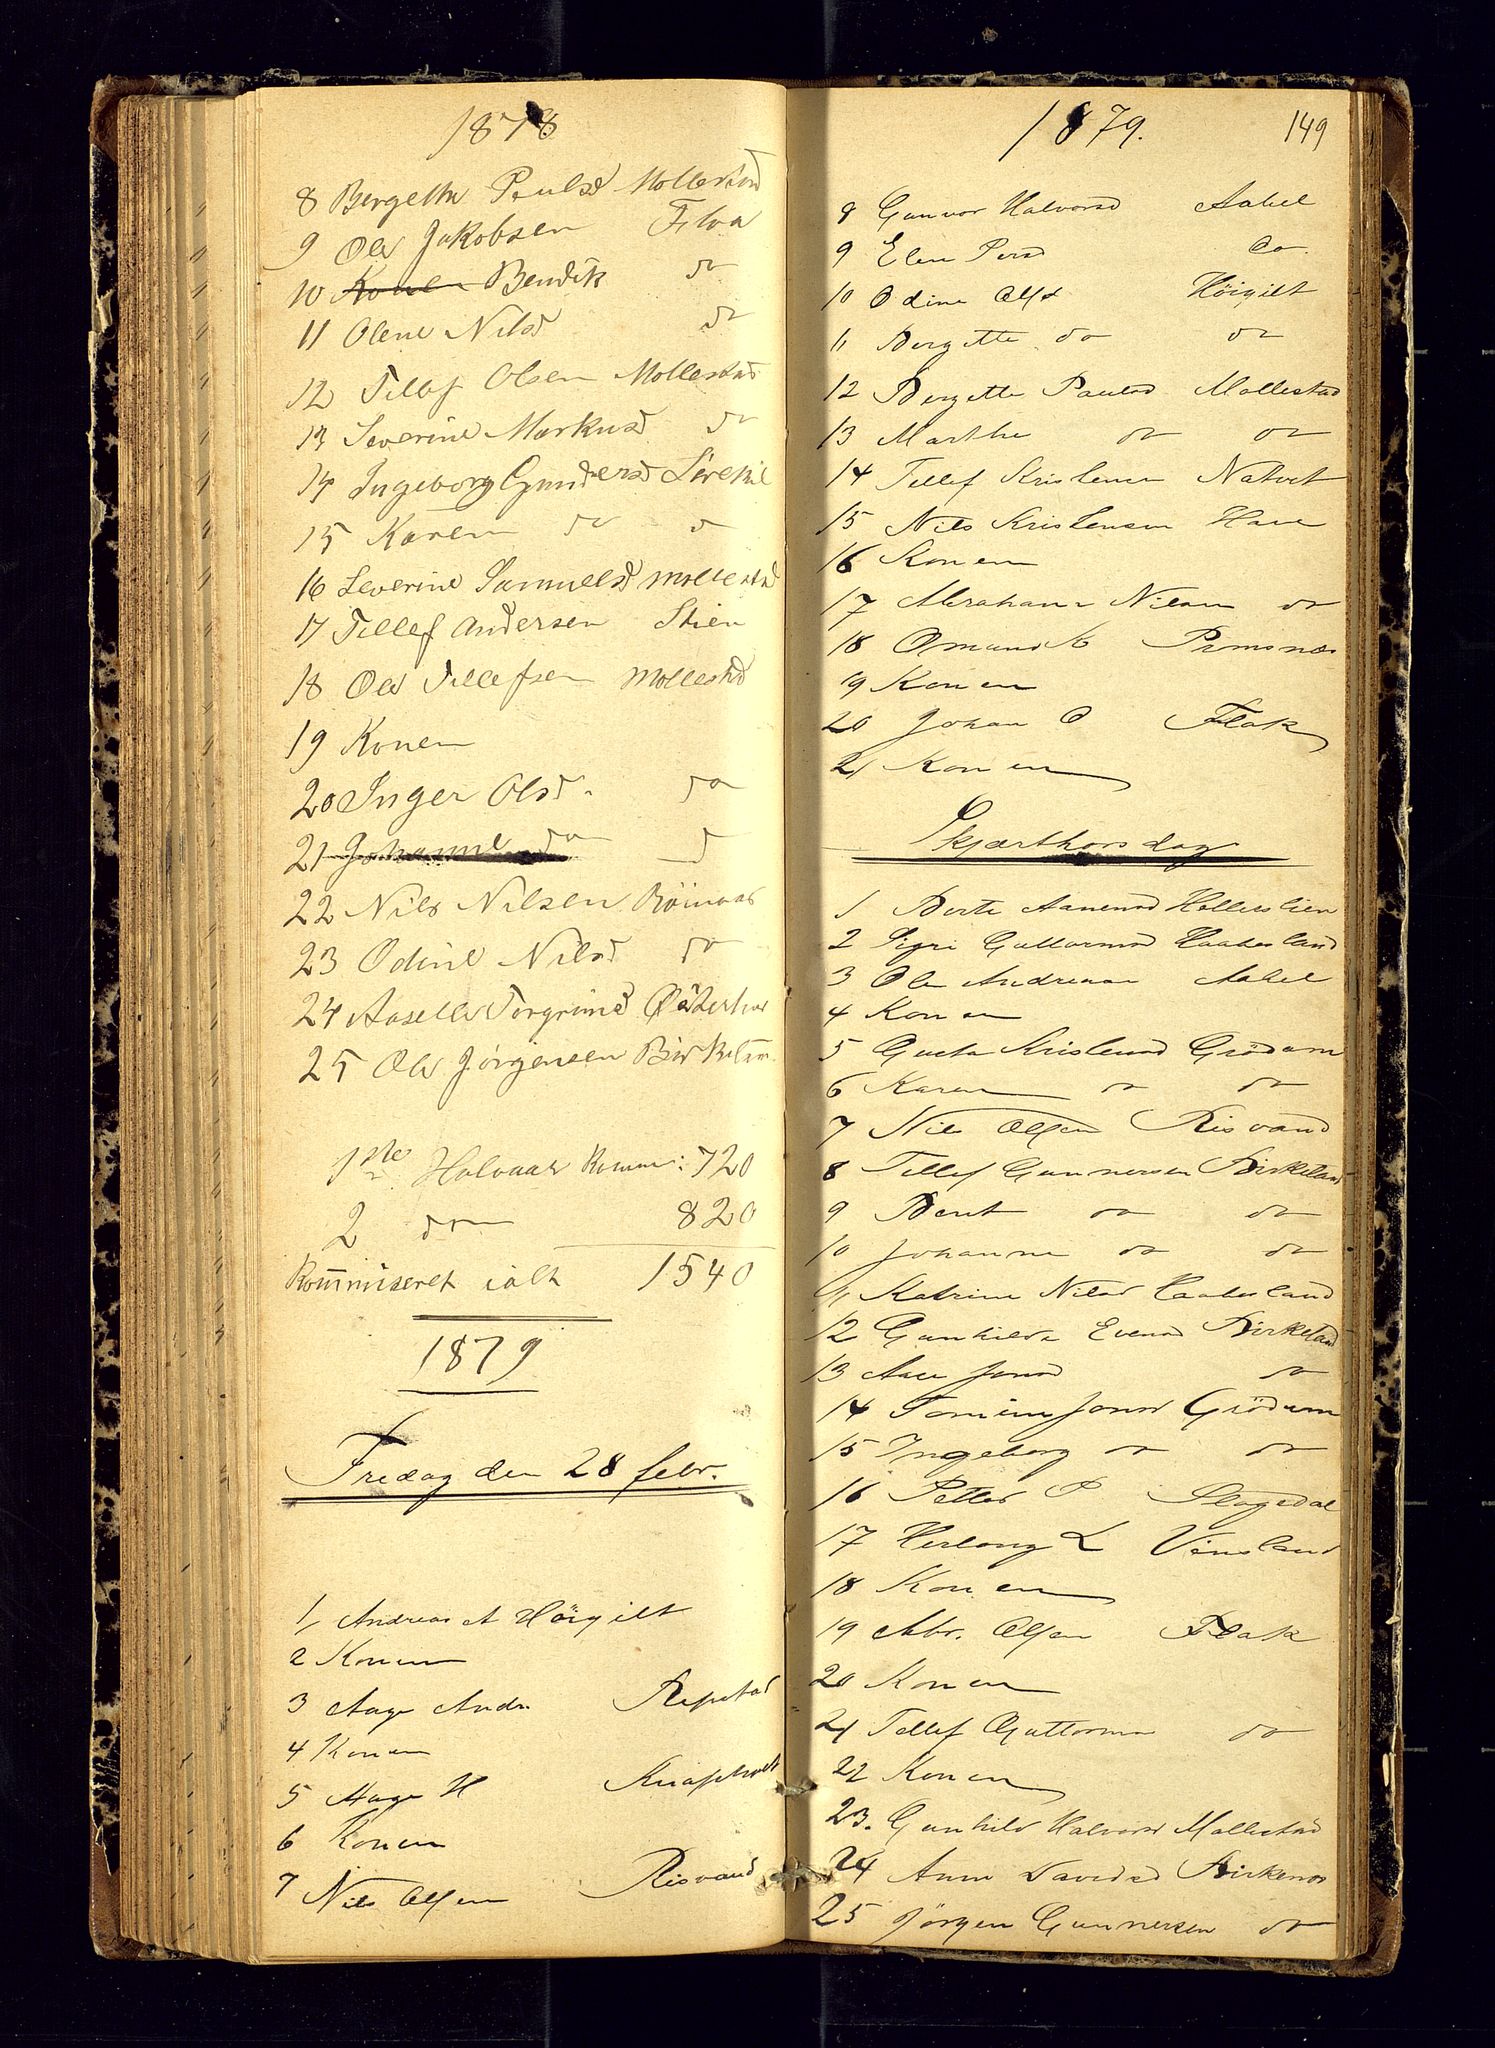 1878
8 Bergethe Paulsd Mollestad
9 Ole Jakobsen Flaa
10 Konen Bendik do
11 Olene Nilsd do
12 Tellef Olsen Mollestad
13 Severine Markusd do
14 Ingeborg Gundersd
15 Karen do do
16 Severine Samuelsd Mollestad
17 Tellef Andersen Stien
18 Ole Tellefsen Mollestad
19 Konen
20 Inger Olsd. do
21 Johanne do do
22 Nils Nilsen
23 Odine Nilsd do
24 Aaselle Torgrimsd
25 Ole Jørgensen
1ste Halvaar Komm: 720
2 do 820
Kommuniseret ialt 1540
1879
Fredag den 28 febr.
1 Andreas A Höigilt
2 Konen
3 Aage Andr. Repstad
4 Konen
5 Aage H Knapholt
6 Konen
7 Nils Olsen Risvand
1879.
149
8 Gunvor Halvorsd Aabel
9 Elen Persd do
10 Odine Olsd Höigilt
11 Bergitte do do
12 Bergitte Paulsd Mollestad
13 Marthe do do
14 Tellef Kristensen Natvet
15 Nils Kristensen Have
16 Konen
17 Abraham Nilsen do
18 Omund K
19 Konen
20 Johan O Flak
21 Konen
Skjærthorsdag
1 Berte Aanensd Hellerslien
2 Sigri Guttormsd Haabesland
3 Ole Andreasen Aabel
4 Konen
5 Gusta Kristensd Grödum
6 Karen do do
7 Nils Olsen Risvand
8 Tellef Gunnersen Birkeland
9 Berit do do
10 Johanne do do
11 Katrine Nilsd Haabesland
12 Gunhilde Evensd Birkeland
13 Aase Jonsd do
14 Tomine Jonsd Grödum
15 Ingeborg do do
16 Petter P Slogedal
17 Herlaug L Vinsland
18 Konen
19 Abr. Olsen Flak
20 Konen
21 Tellef Guttormsen do
22 Konen
23. Gunhild Halvorsd Mollestad
24 Anne Davidsd Birkenes
25 Jörgen Gunnersen do